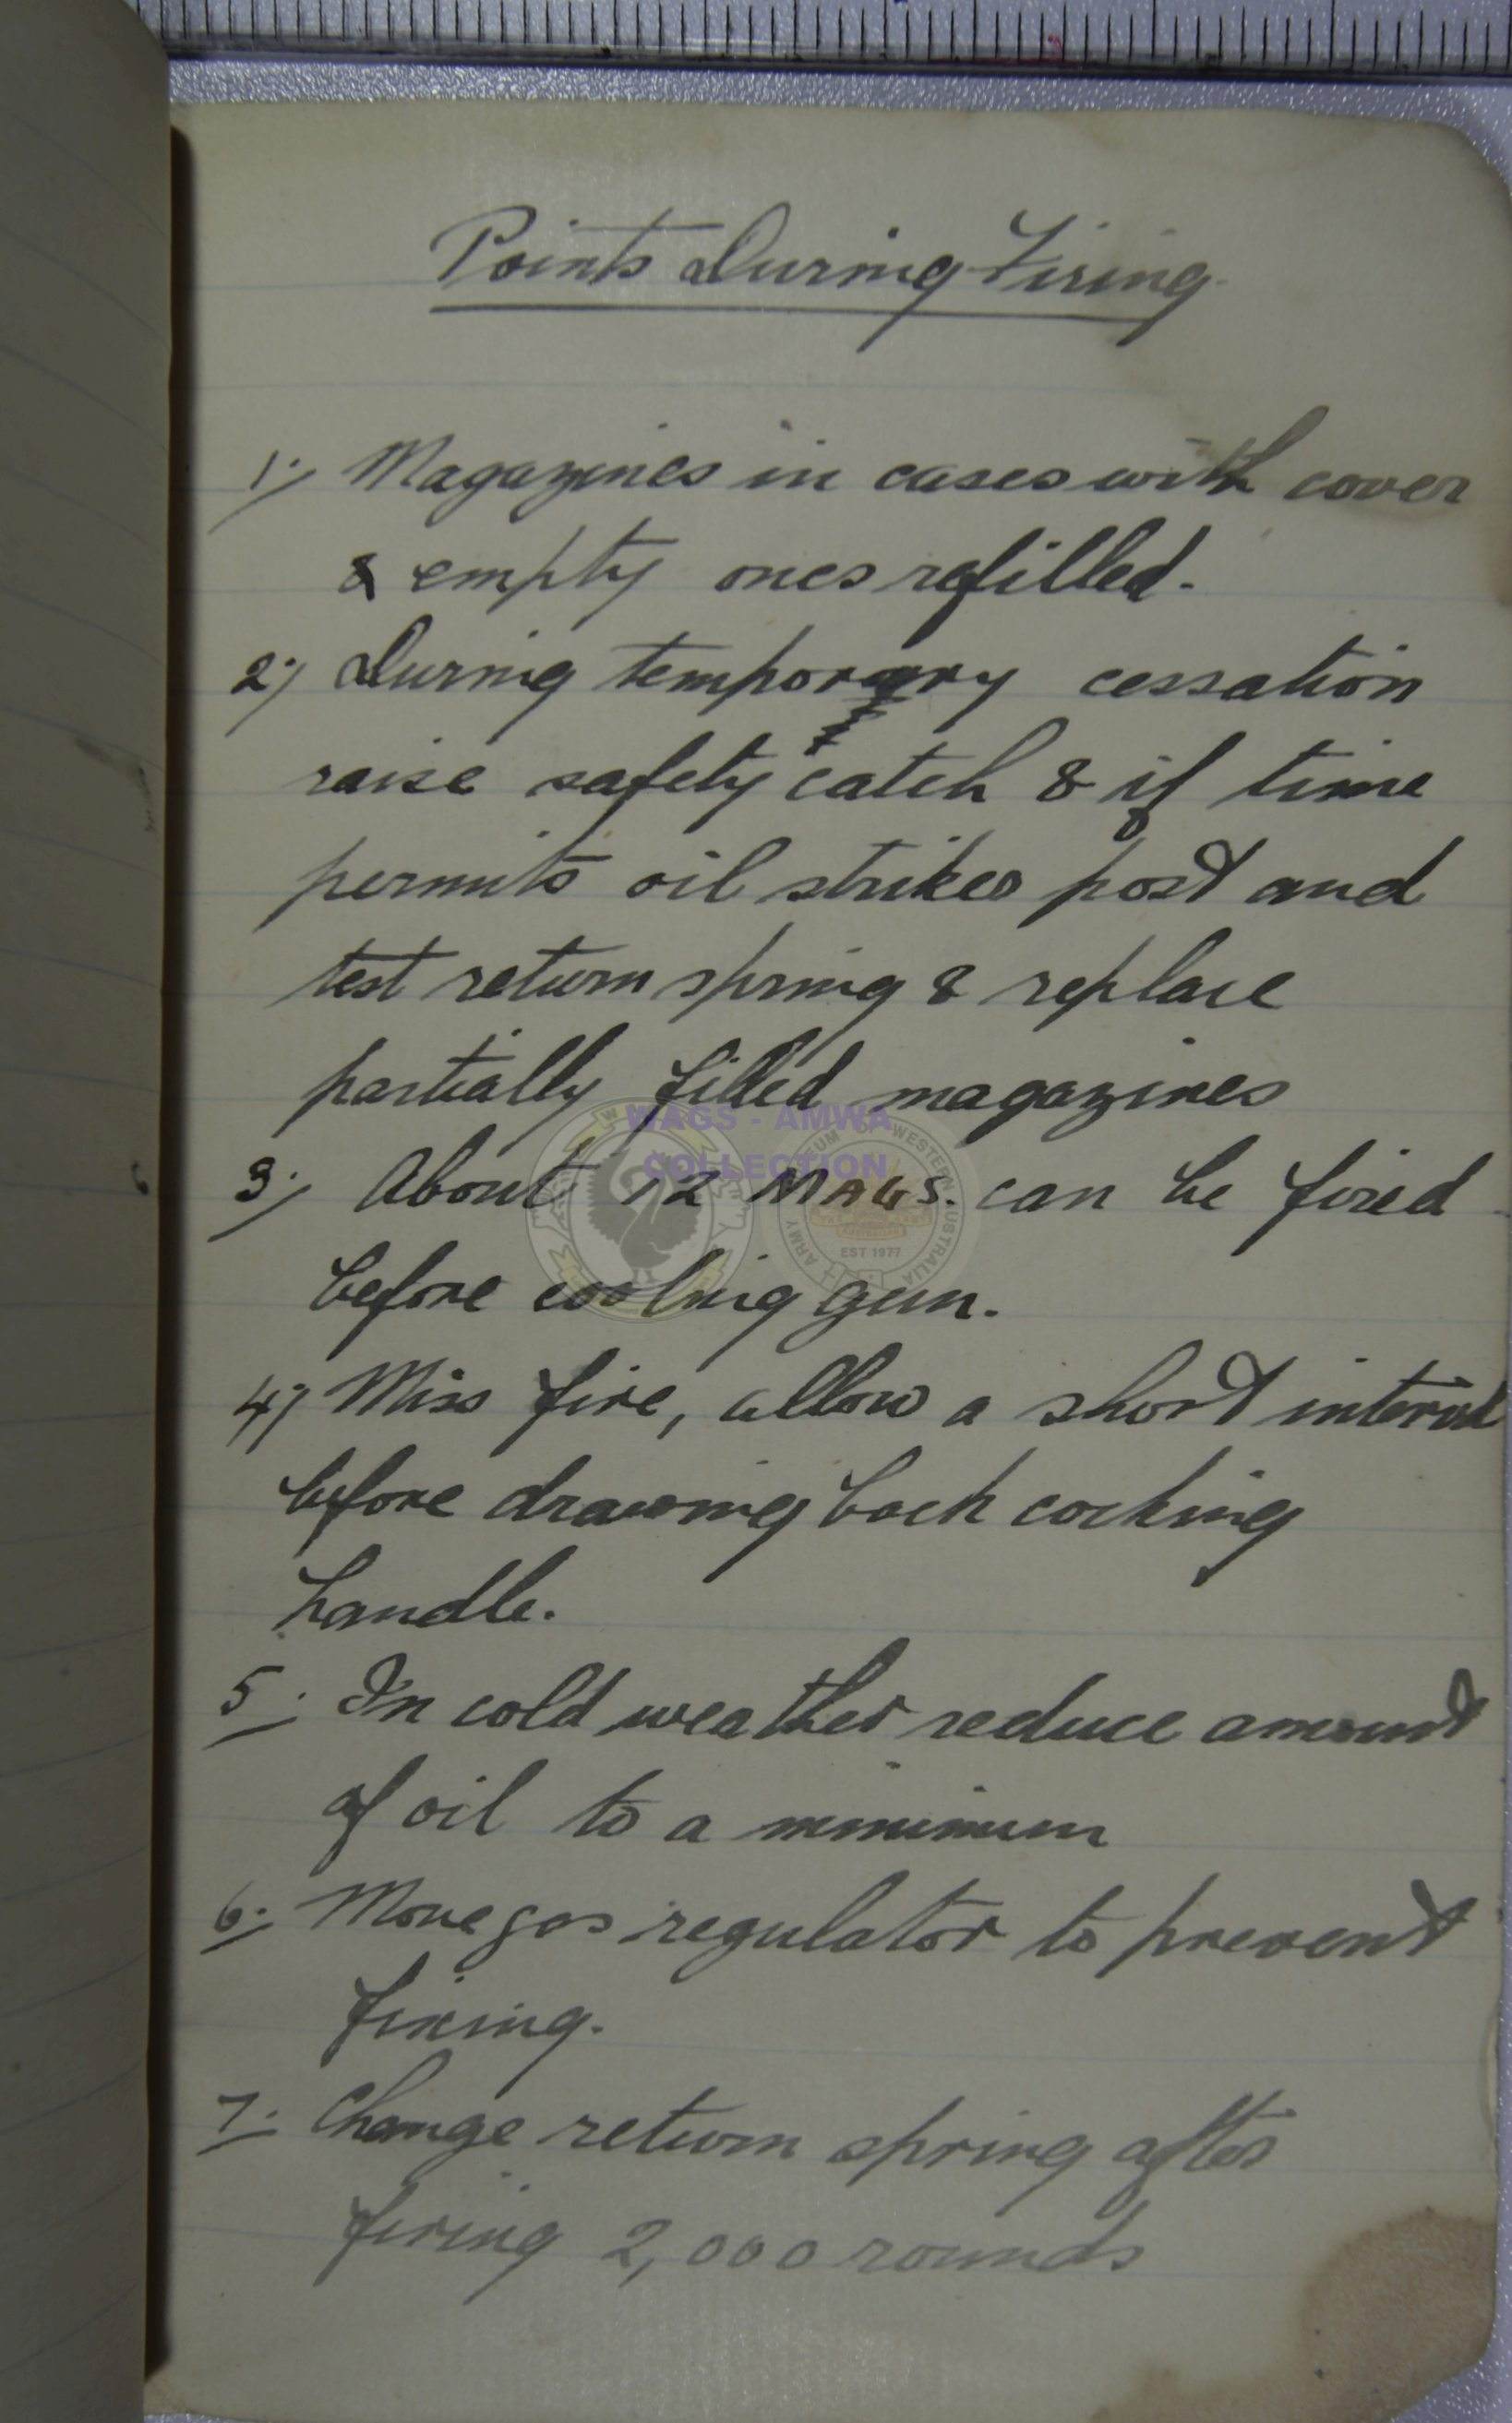 Points During Firing.
1. Magazines in cases with cover
& empty ones refilled.
2. During temporary cessation
raise safety catch & if time
permits oil striker post and
test return spring & replace
partially filled magazines
WAGS - AMWA
COLLECTION
3. About 12 MAGS. can be fired
EST 1977
before cooling gun.
4. Miss fire, allow a short interval
before drawing back cocking
handle.
5. In cold weather reduce amount
of oil to a minimum
6. Move gas regulator to prevent
fixing.
7. Change return spring after
firing 2,000 rounds